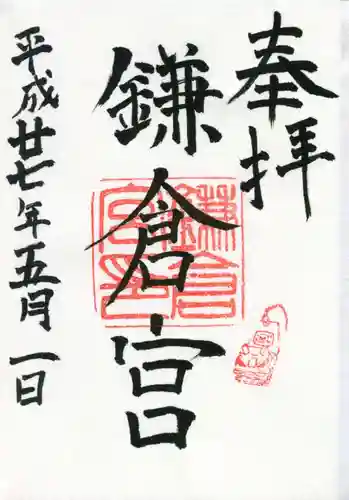 奉拝
鎌倉宮
鎌倉
宮印
平成廿七年五月一日